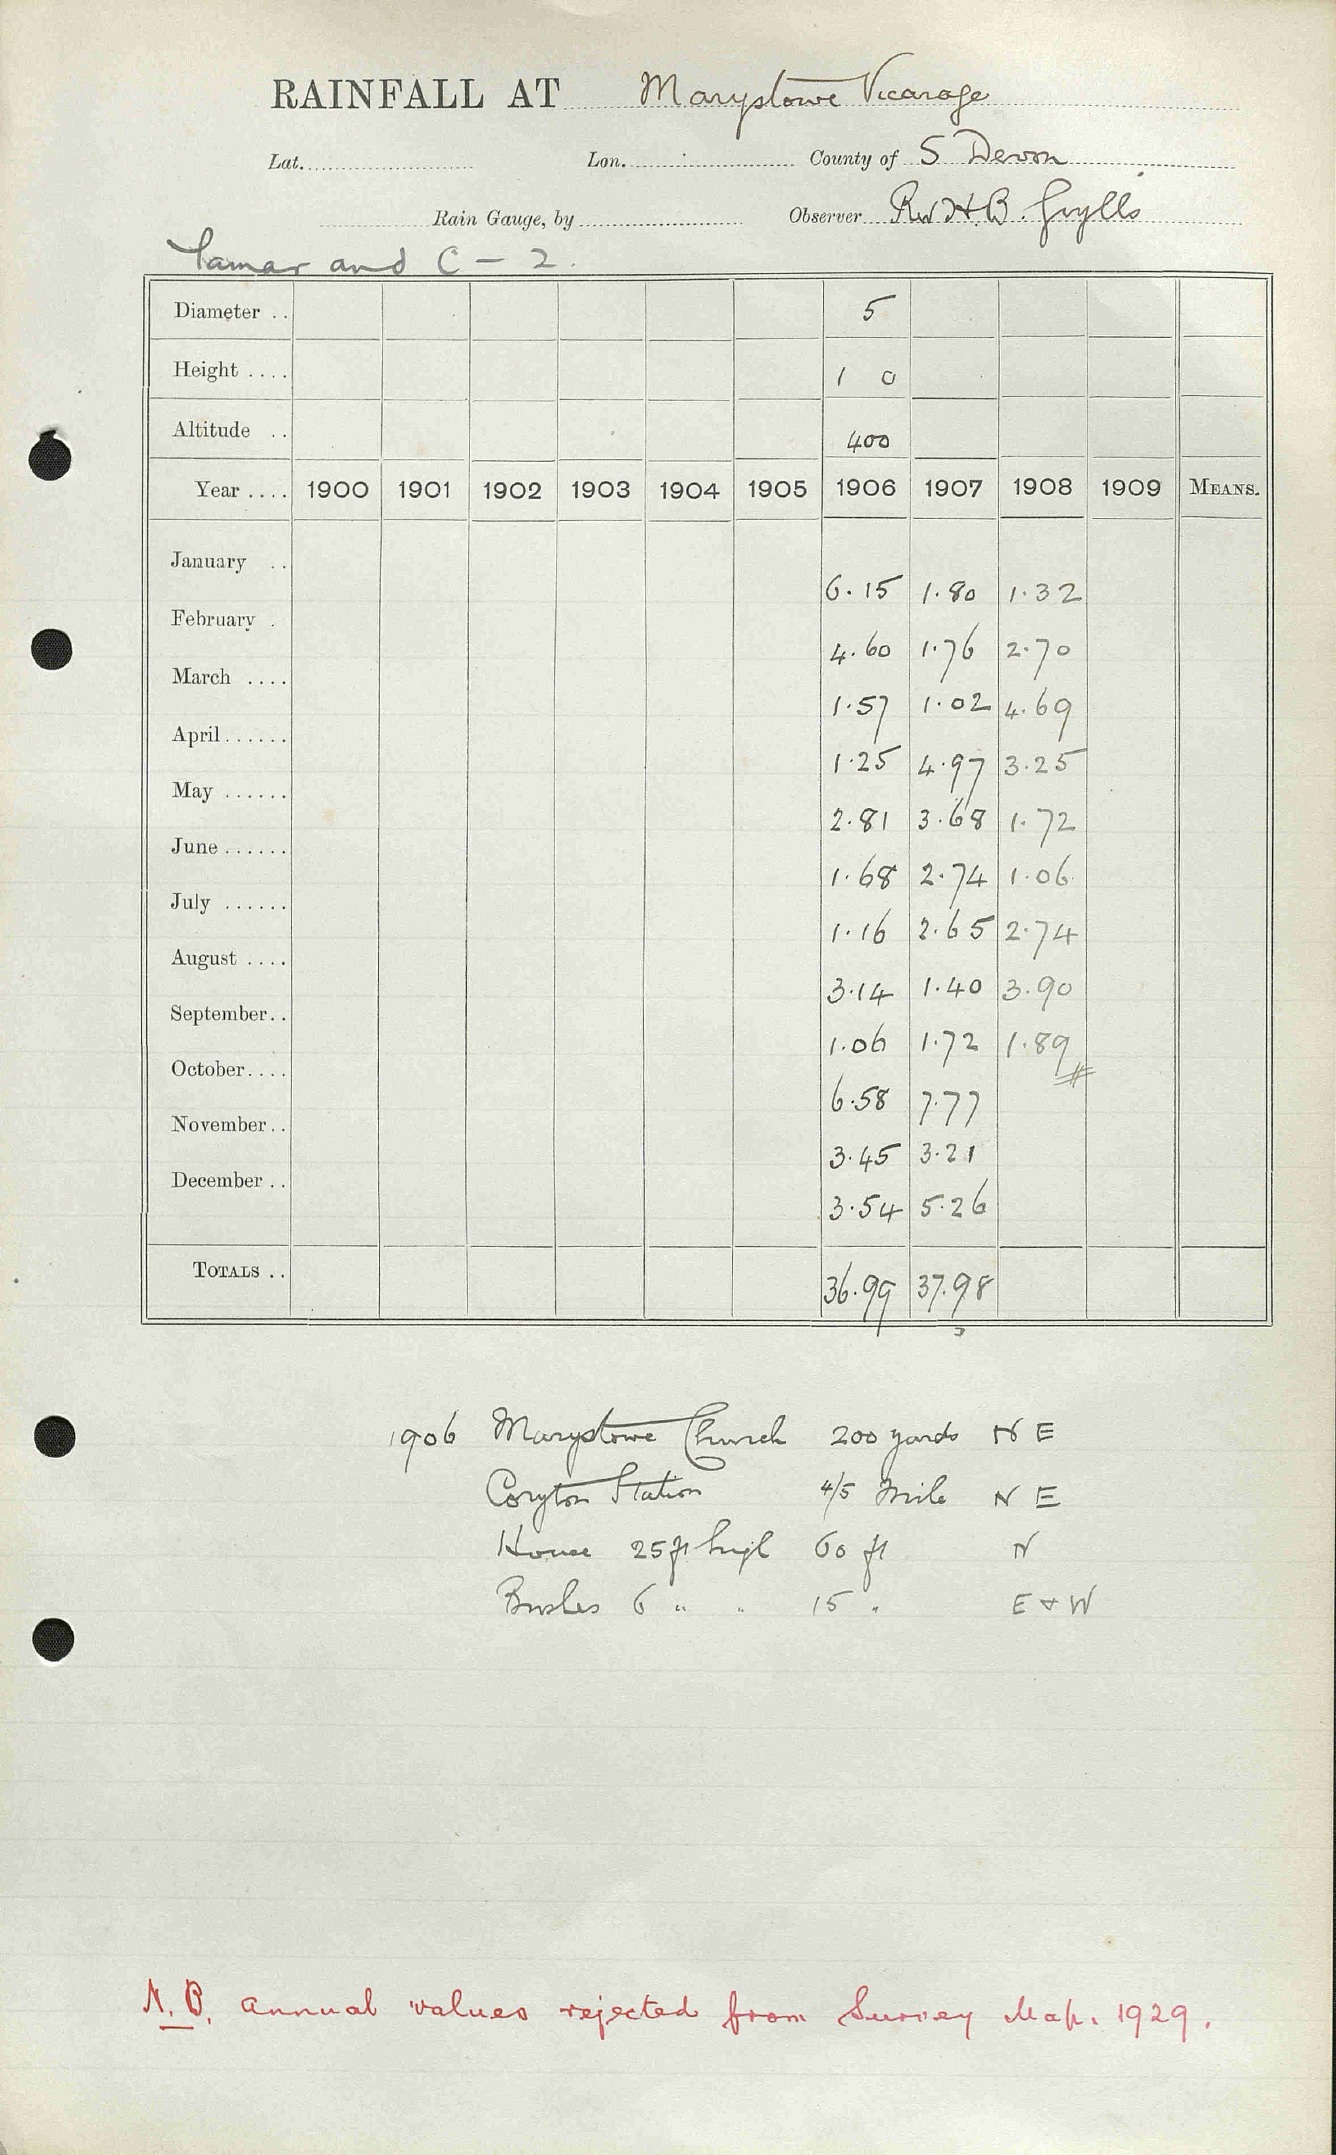 RAINFALL AT Marystowe Vicarage
Lat. Lon. County of S Devon
Rain Gauge, by Observer Rev H.B. Grylls
Tamar and C - 2.
Diameter .. 5
Height .... 1 0
Altitude .. 400
Year .... 1900 1901 1902 1903 1904 1905 1906 1907 1908 1909 MEANS.
January .. 6.15 1.80 1.32
February . 4.60 1.76 2.70
March .... 1.57 1.02 4.69
April ...... 1.25 4.97 3.25
May ...... 2.81 3.68 1.72
June ...... 1.68 2.74 1.06
July ...... 1.16 2.65 2.74
August .... 3.14 1.40 3.90
September.. 1.06 1.72 1.89
October.... 6.58 7.77
November.. 3.45 3.21
December .. 3.54 5.26
TOTALS .. 36.99 37.98
1906 Marystowe Church 200 yards N E
Coryton Station 4/5 Mile N E
House 25 ft high 60 ft N
Bushes 6 " " 15 " E & W
N.B. Annual values rejected from Survey Map. 1929.